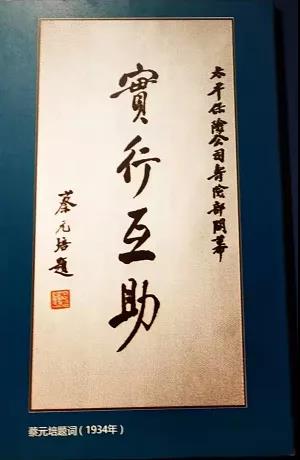 太平保險公司壽險部開幕
實行互助
蔡元培題
蔡元培题词（1934年）